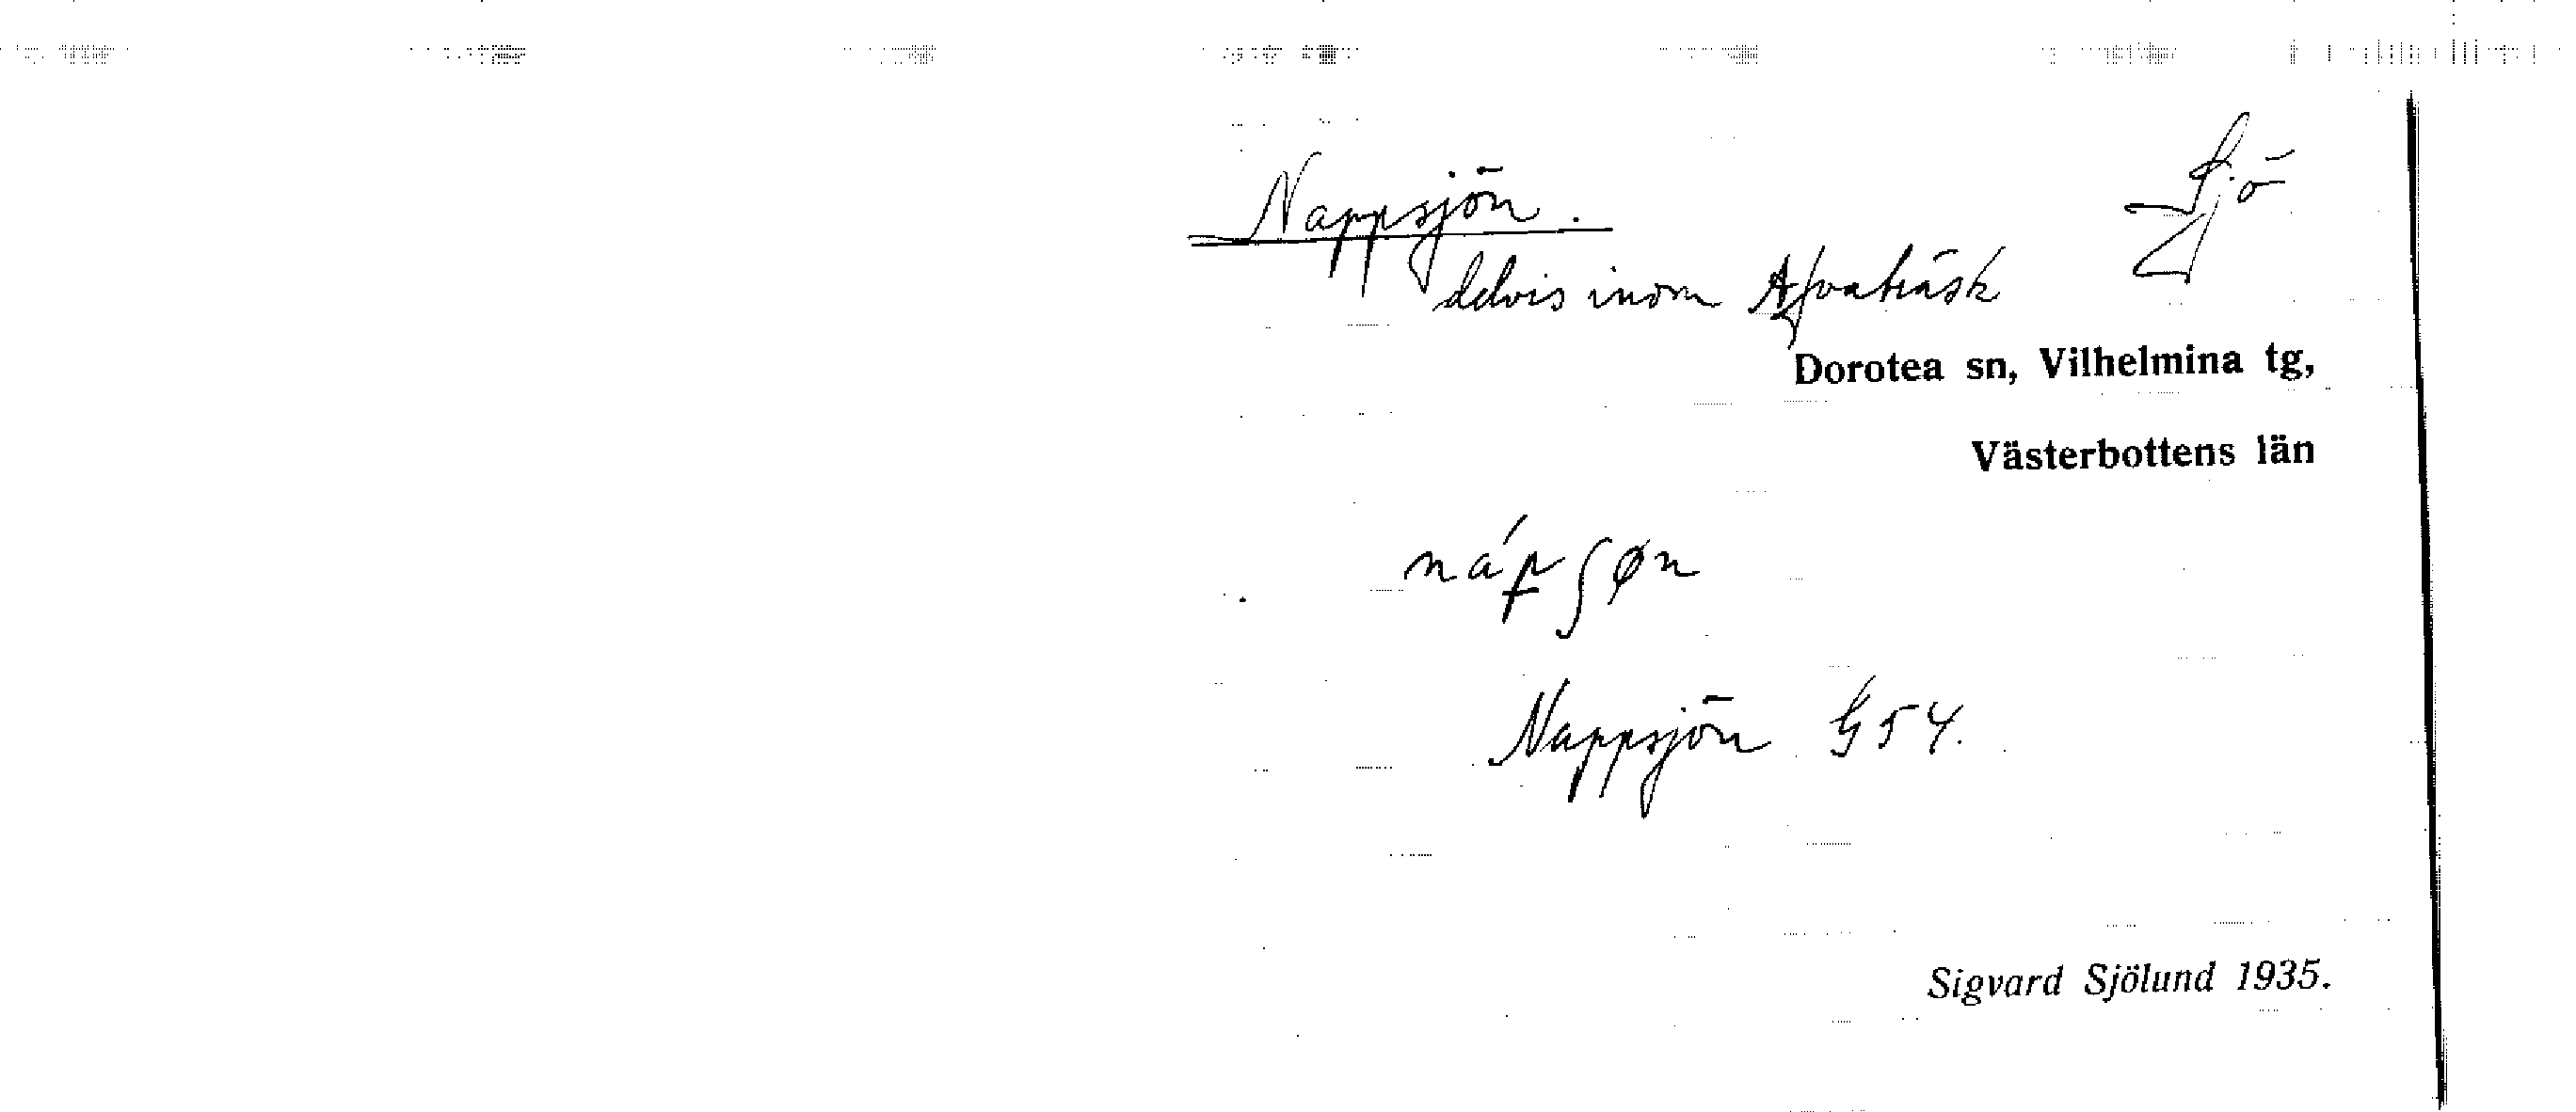 Nappsjön. Sjö
delvis inom Afvaträsk
Dorotea sn, Vilhelmina tg,
Västerbottens län
nápʃøn
Nappsjön G54.
Sigvard Sjölund 1935.